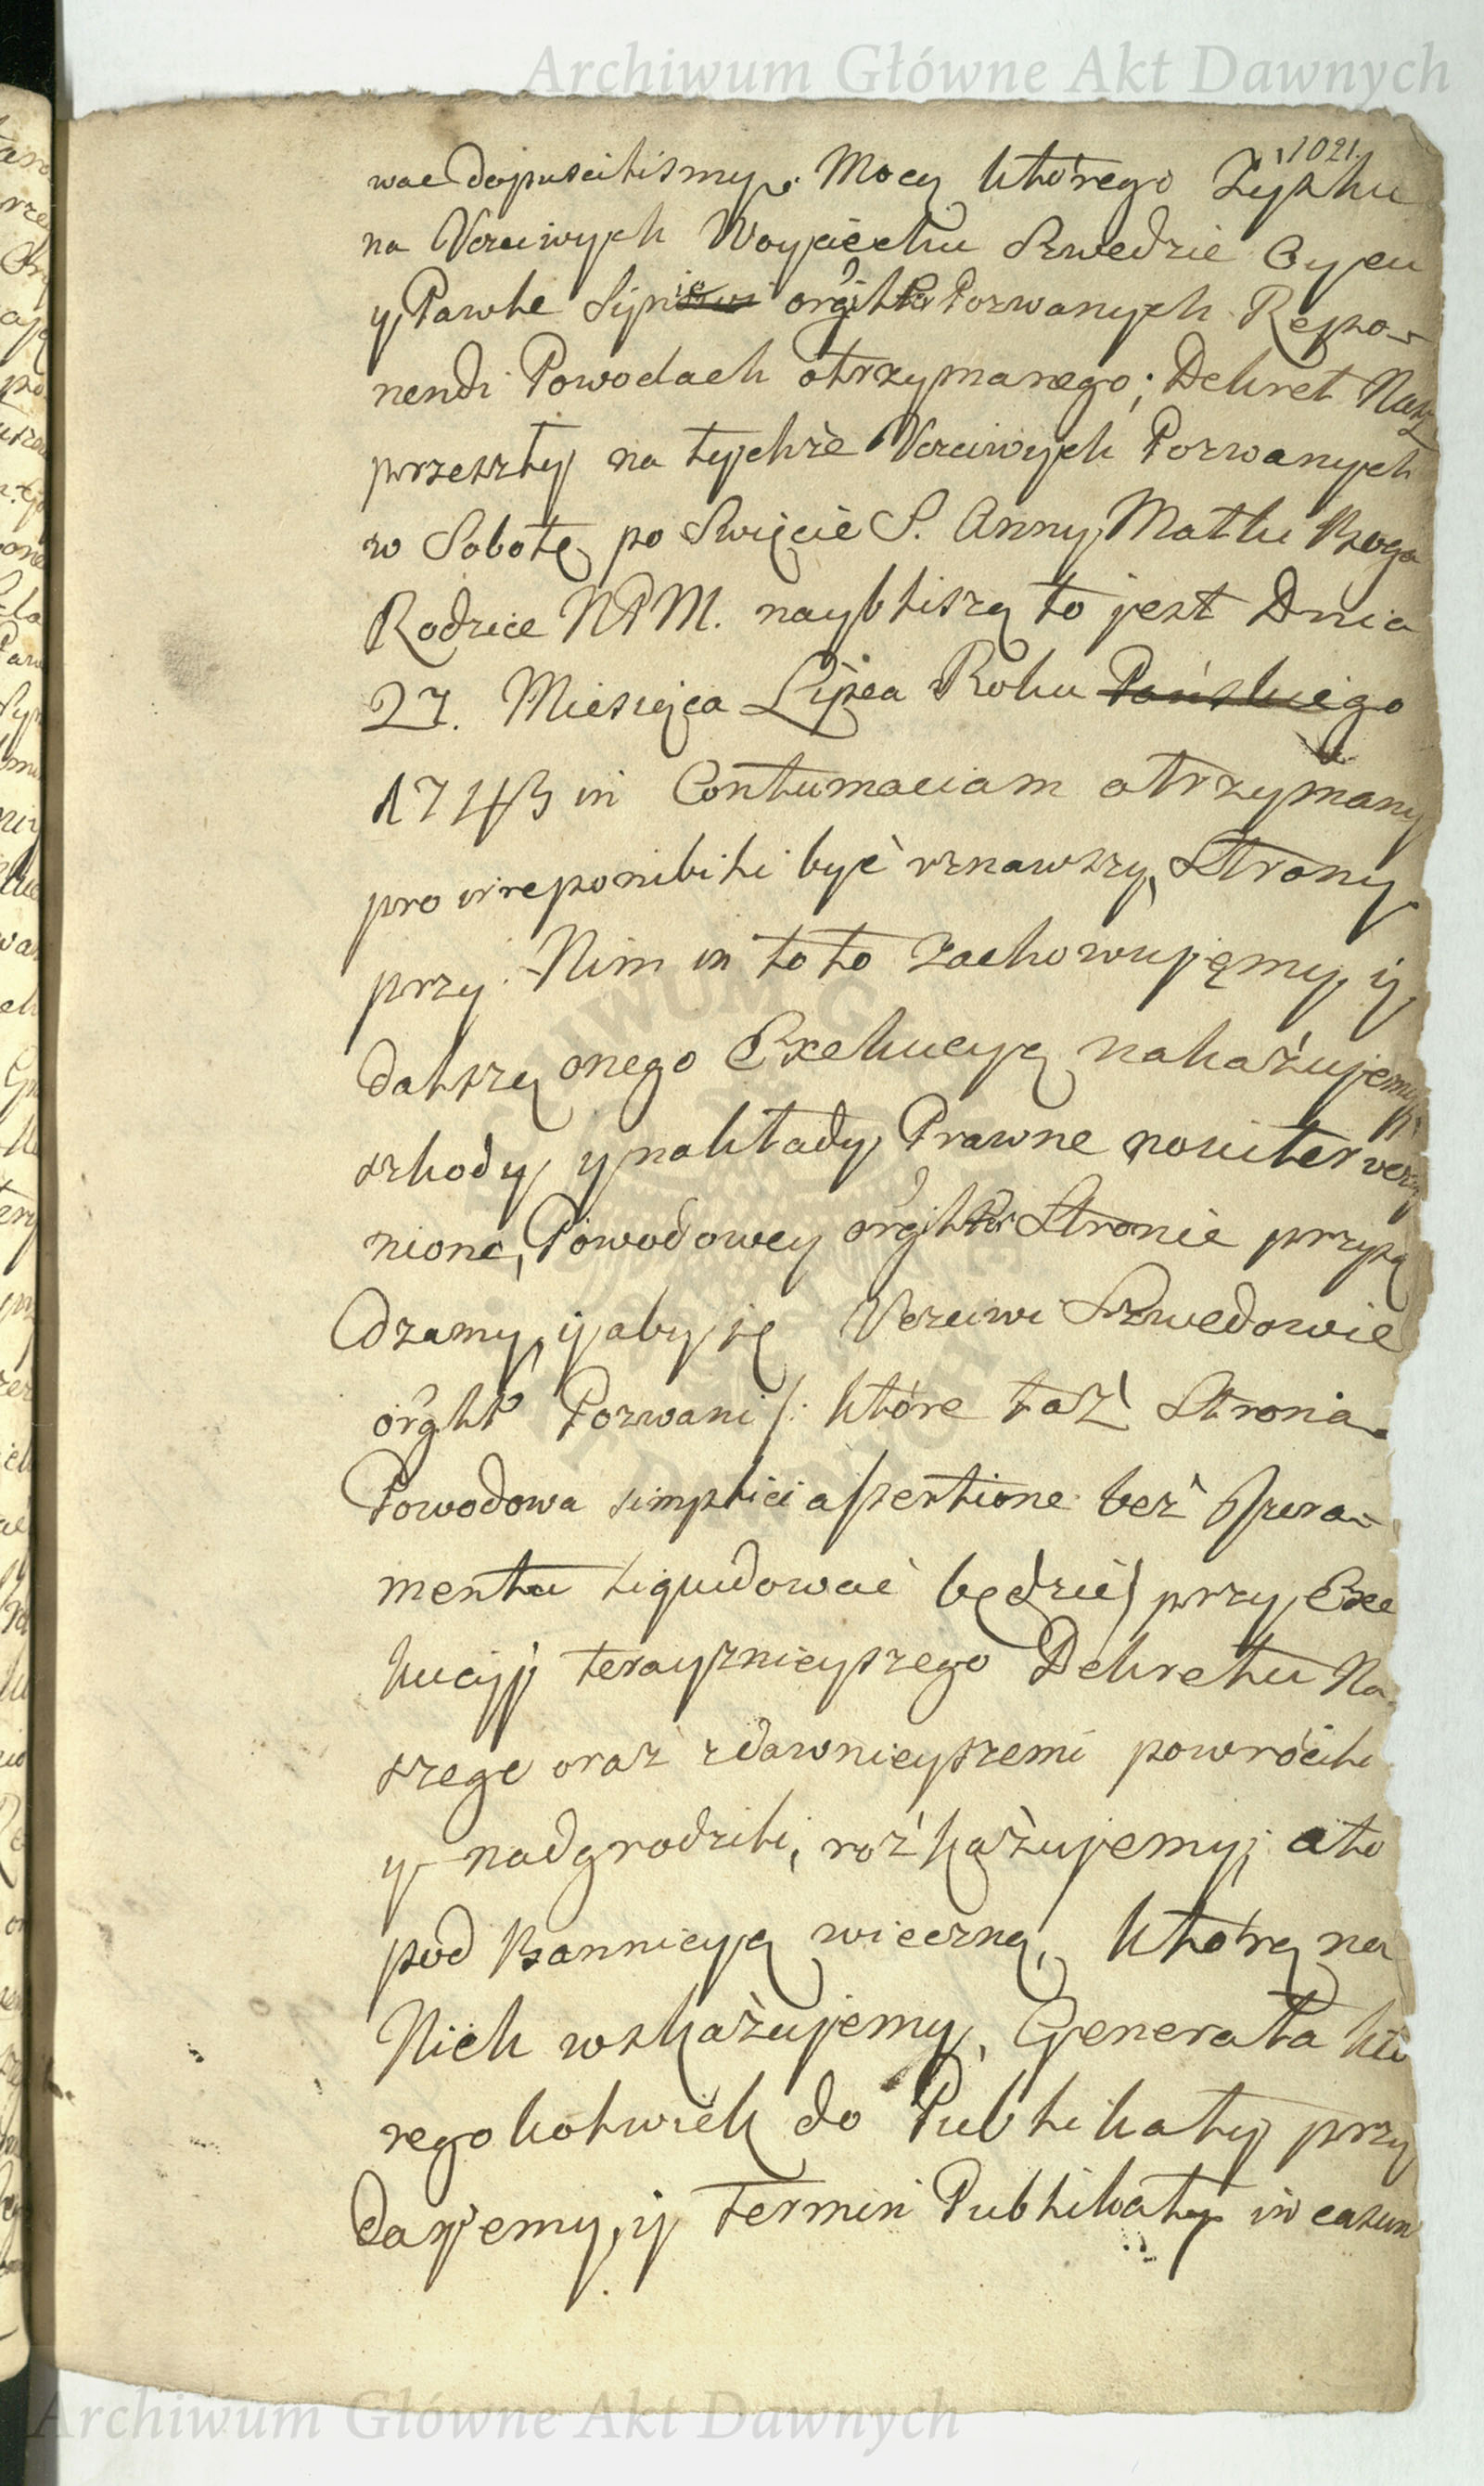 Archiwum Główne Akt Dawnych
1021.
wac dopuscilismy. Mocą ktorego Zysku
na Ucciwych Woyciechu Szwedzie Oycu
y Pawle Synie Pozwanych Repo-
nendi Powodach otrzymanego; Dekret Nasz
przeszły na tychże Ucciwych Pozwanych
w Sobotę po Swięcie S. Anny Matki Boga
Rodzice NPM. nayblizszą to jest Dnia
27. Miesiąca Lipca Roku Pańskiego
1743 in Contumaciam otrzymany
pro irreponibili być uznawszy, Strony
przy Nim in toto zachowujęmy, y
dalszą onego Exekucyą nakażujemy,
szkody y nakłady Prawne noviter uczy
nione, Powodowey Stronie przysą
dzamy, y aby ię Ucciwi Szwedowie
Pozwani /: które taż Strona
Powodowa simplici assertione beż Jura-
mentu liquidować będzie/ przy Exe
kucyi teraysznieyszego Dekretu Na
szego oraz zdawnieyszemi powrócili
y nadgrodzili, rożkażujemy; a to
pod Bannicyą wieczną, którą na
Nich wskażujemy, Generała któ
regokolwiek do Publikaty przy
dajemy, y Termin Publikaty in casum
Archiwum Główne Akt Dawnych